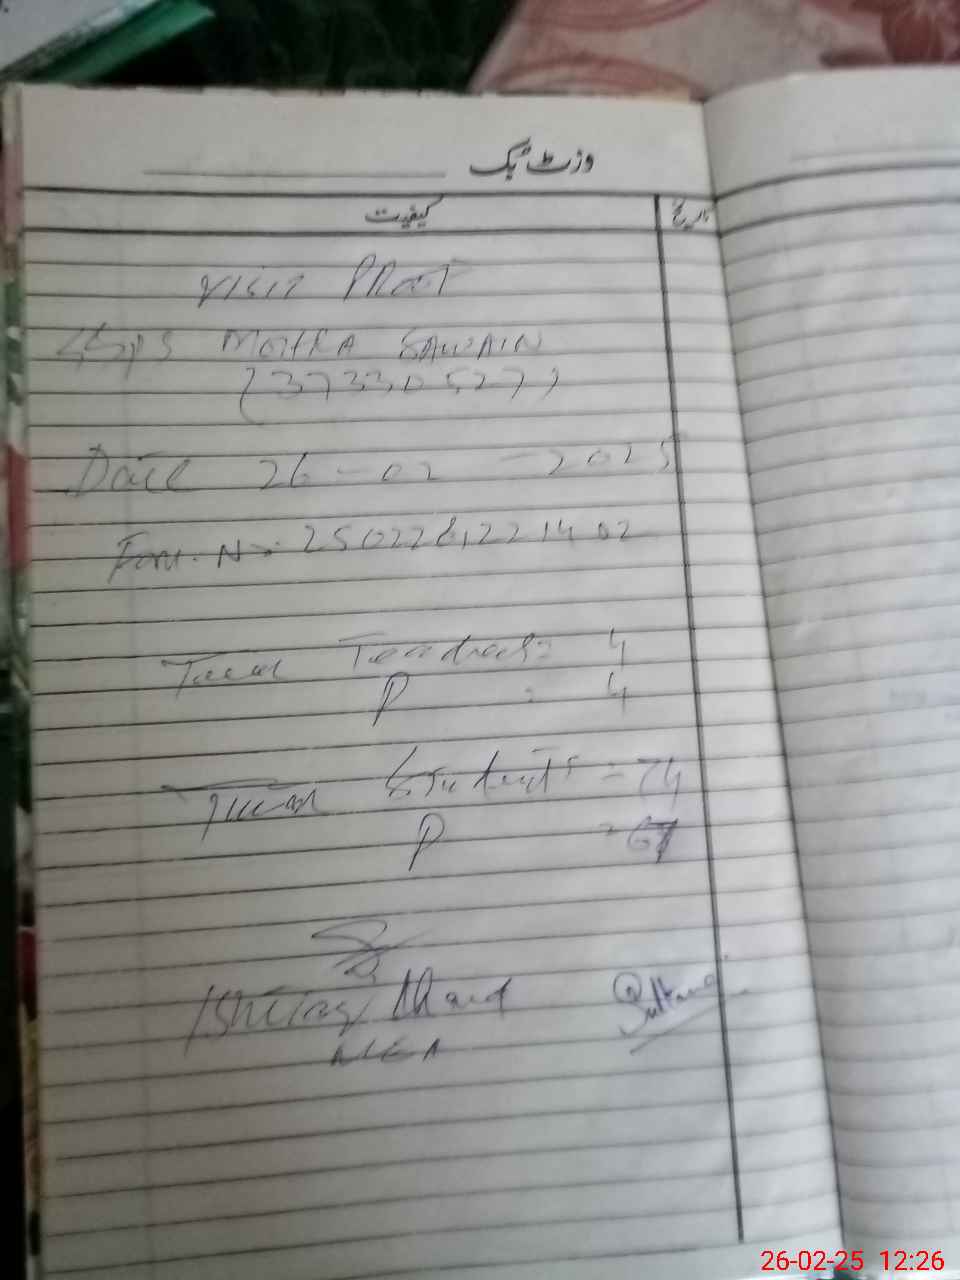 وزٹ بک
کیفیت
تاریخ
Visit Proof
MOHRA SAWAIN
(37330527)
Date 26-02-2025
Total Teachers = 4
P : 4
Total Students = 74
P = 67
Ahmed
MEA
Sultana
26-02-25 12:26